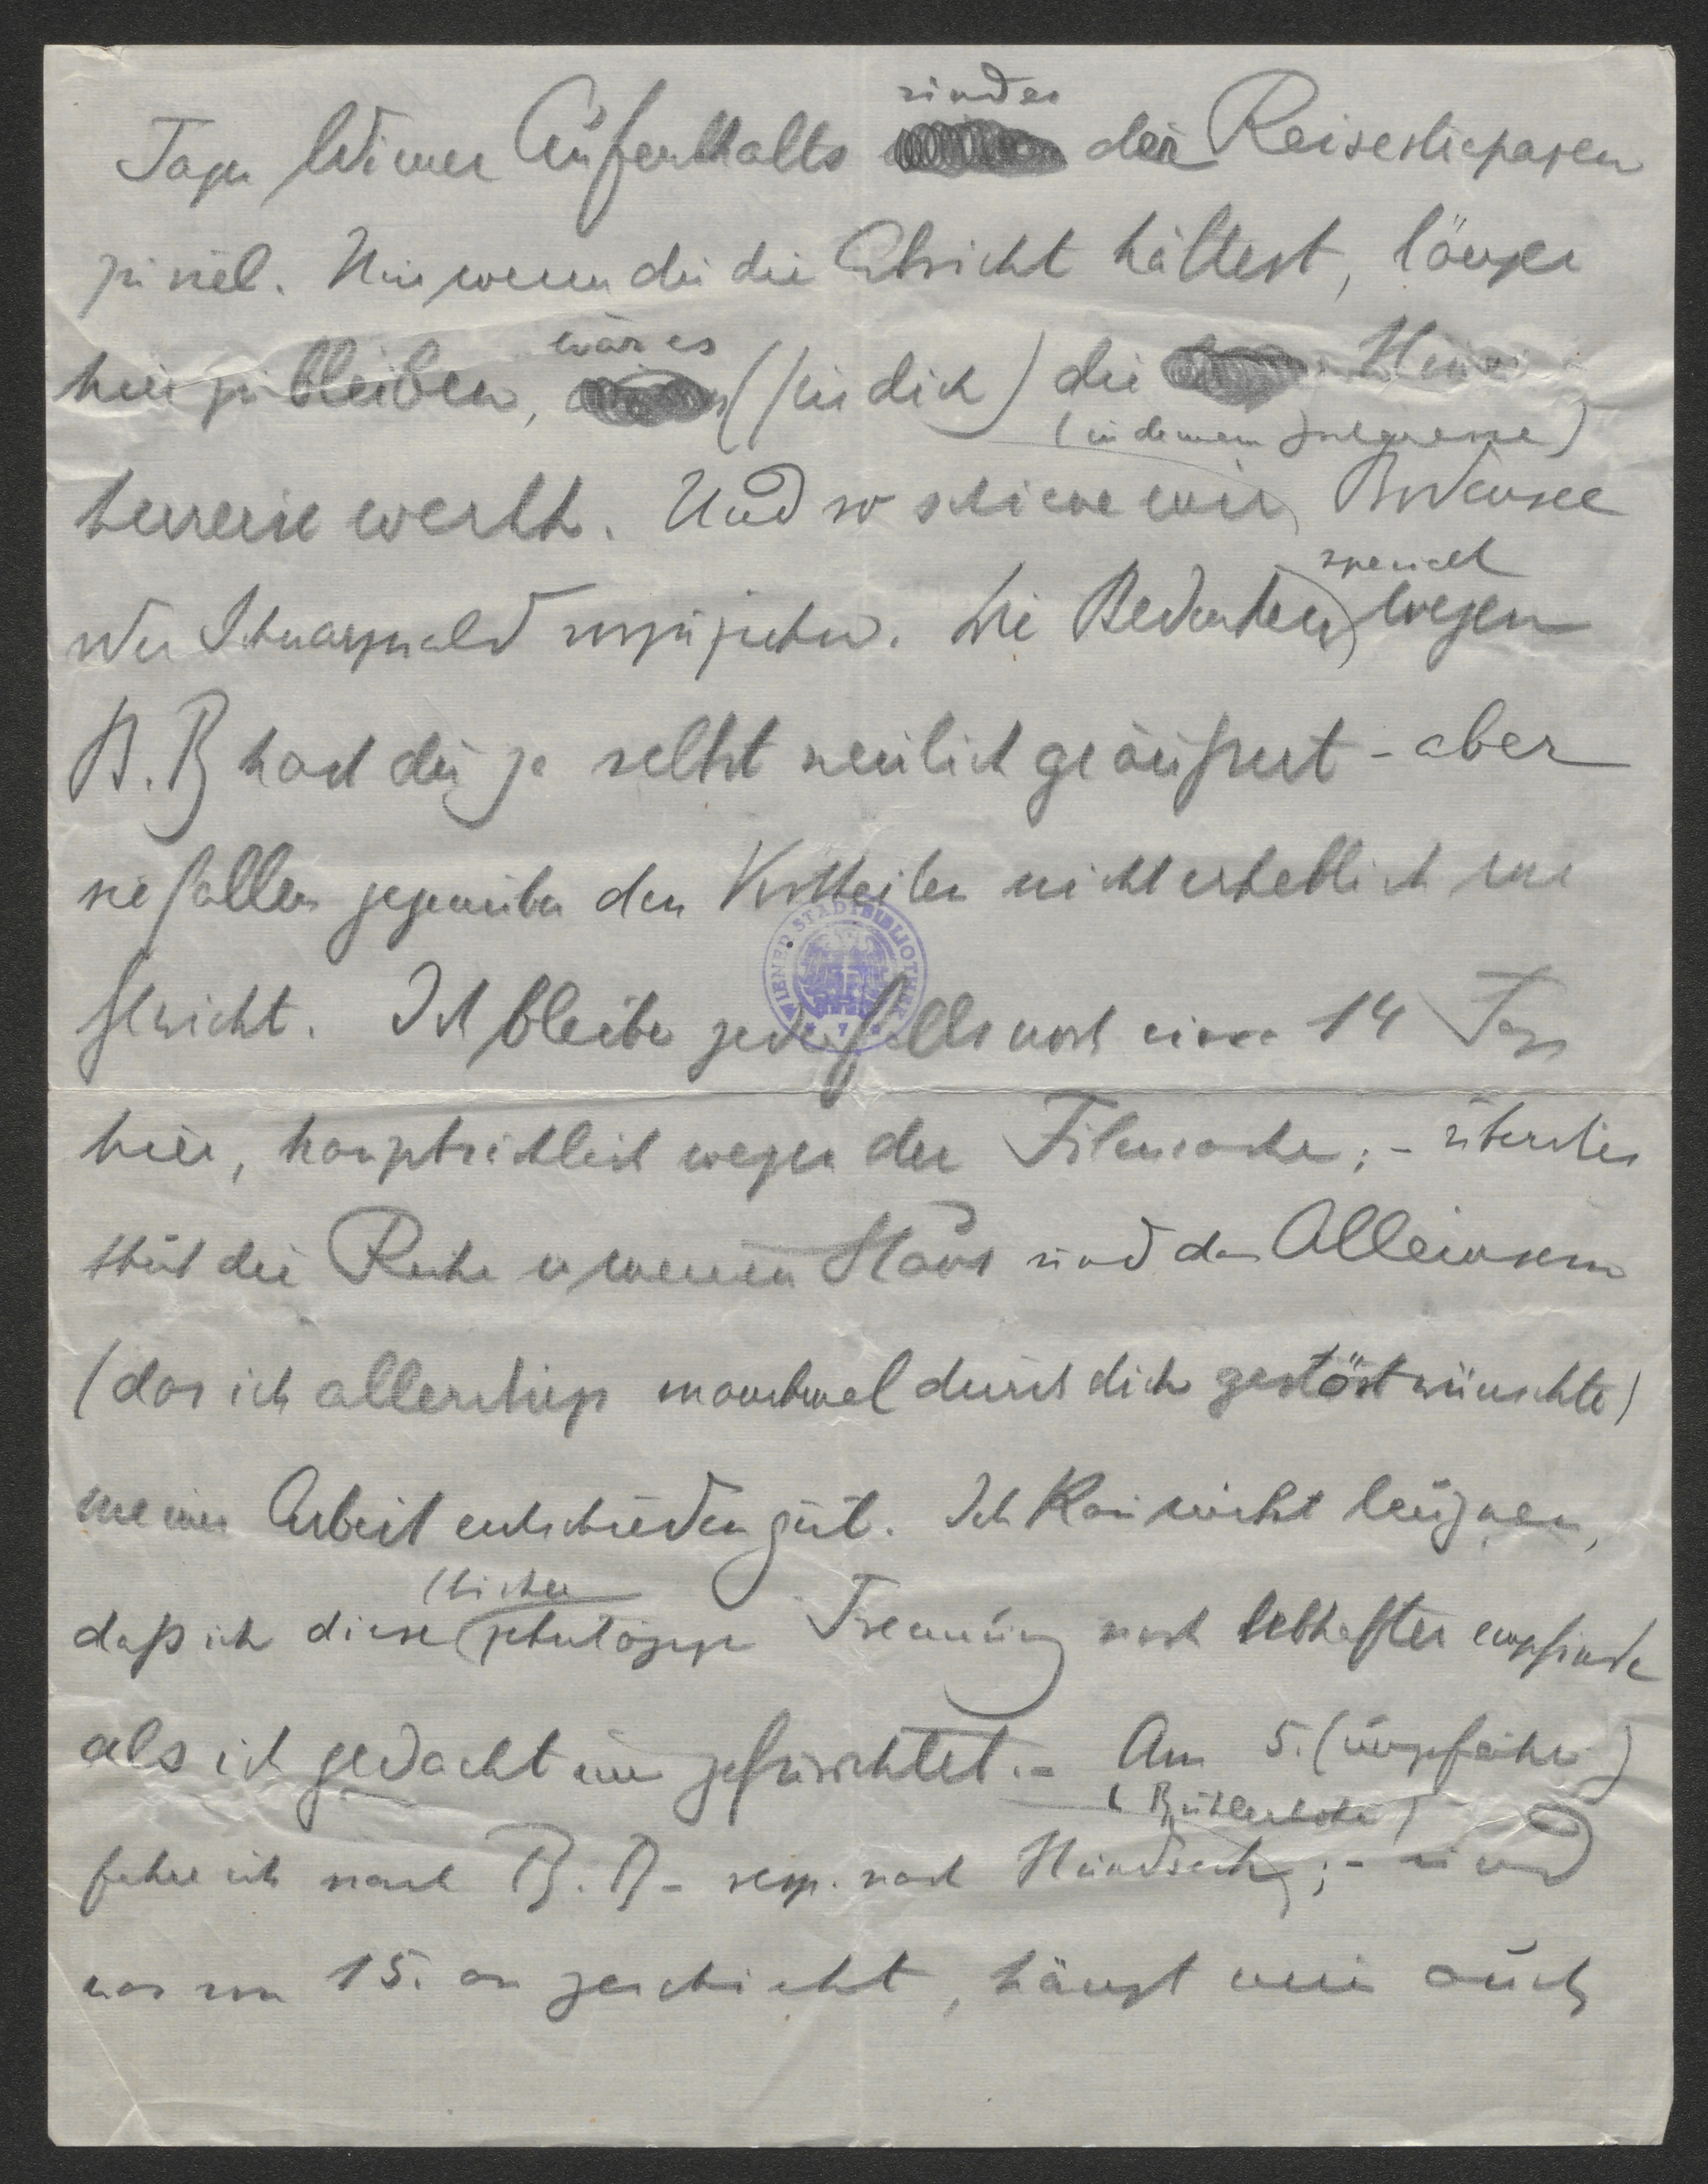 Tage Wiener Aufenthalts sind der Reisestrapazen
zu viel. Nur wenn du die Absicht hättest, länger
hier zu bleiben, wär es (für dich) die Hin
(in deinem Interesse)
herreise werth. Und so schiene mir Bodensee
oder Schwarzwald vorzuziehen. Die Bedenken speciell wegen
B. B hast du ja selbst neulich geäußert - aber
sie fallen gegenüber den Vortheilen nicht erheblich ins
Gewicht. Ich bleibe jedenfalls noch circa 14 Tage
hier, hauptsächlich wegen der Filmsache; - überdies
thut die Ruhe in meinem Haus und das Alleinsein
(das ich allerdings manchmal durch dich gestört wünschte)
meiner Arbeit entschieden gut. Ich kan nicht leugnen,
daß ich diese (bisher) zehntägige Trennung noch lebhafter empfinde
als ich gedacht und gefürchtet. - Am 5. (ungefähr)
(Bühlerhöhe)
fahre ich nach B. B - resp. nach Hundseck; - und
was vom 15. an geschieht, hängt nun auch
WIENER STADTBIBLIOTHEK